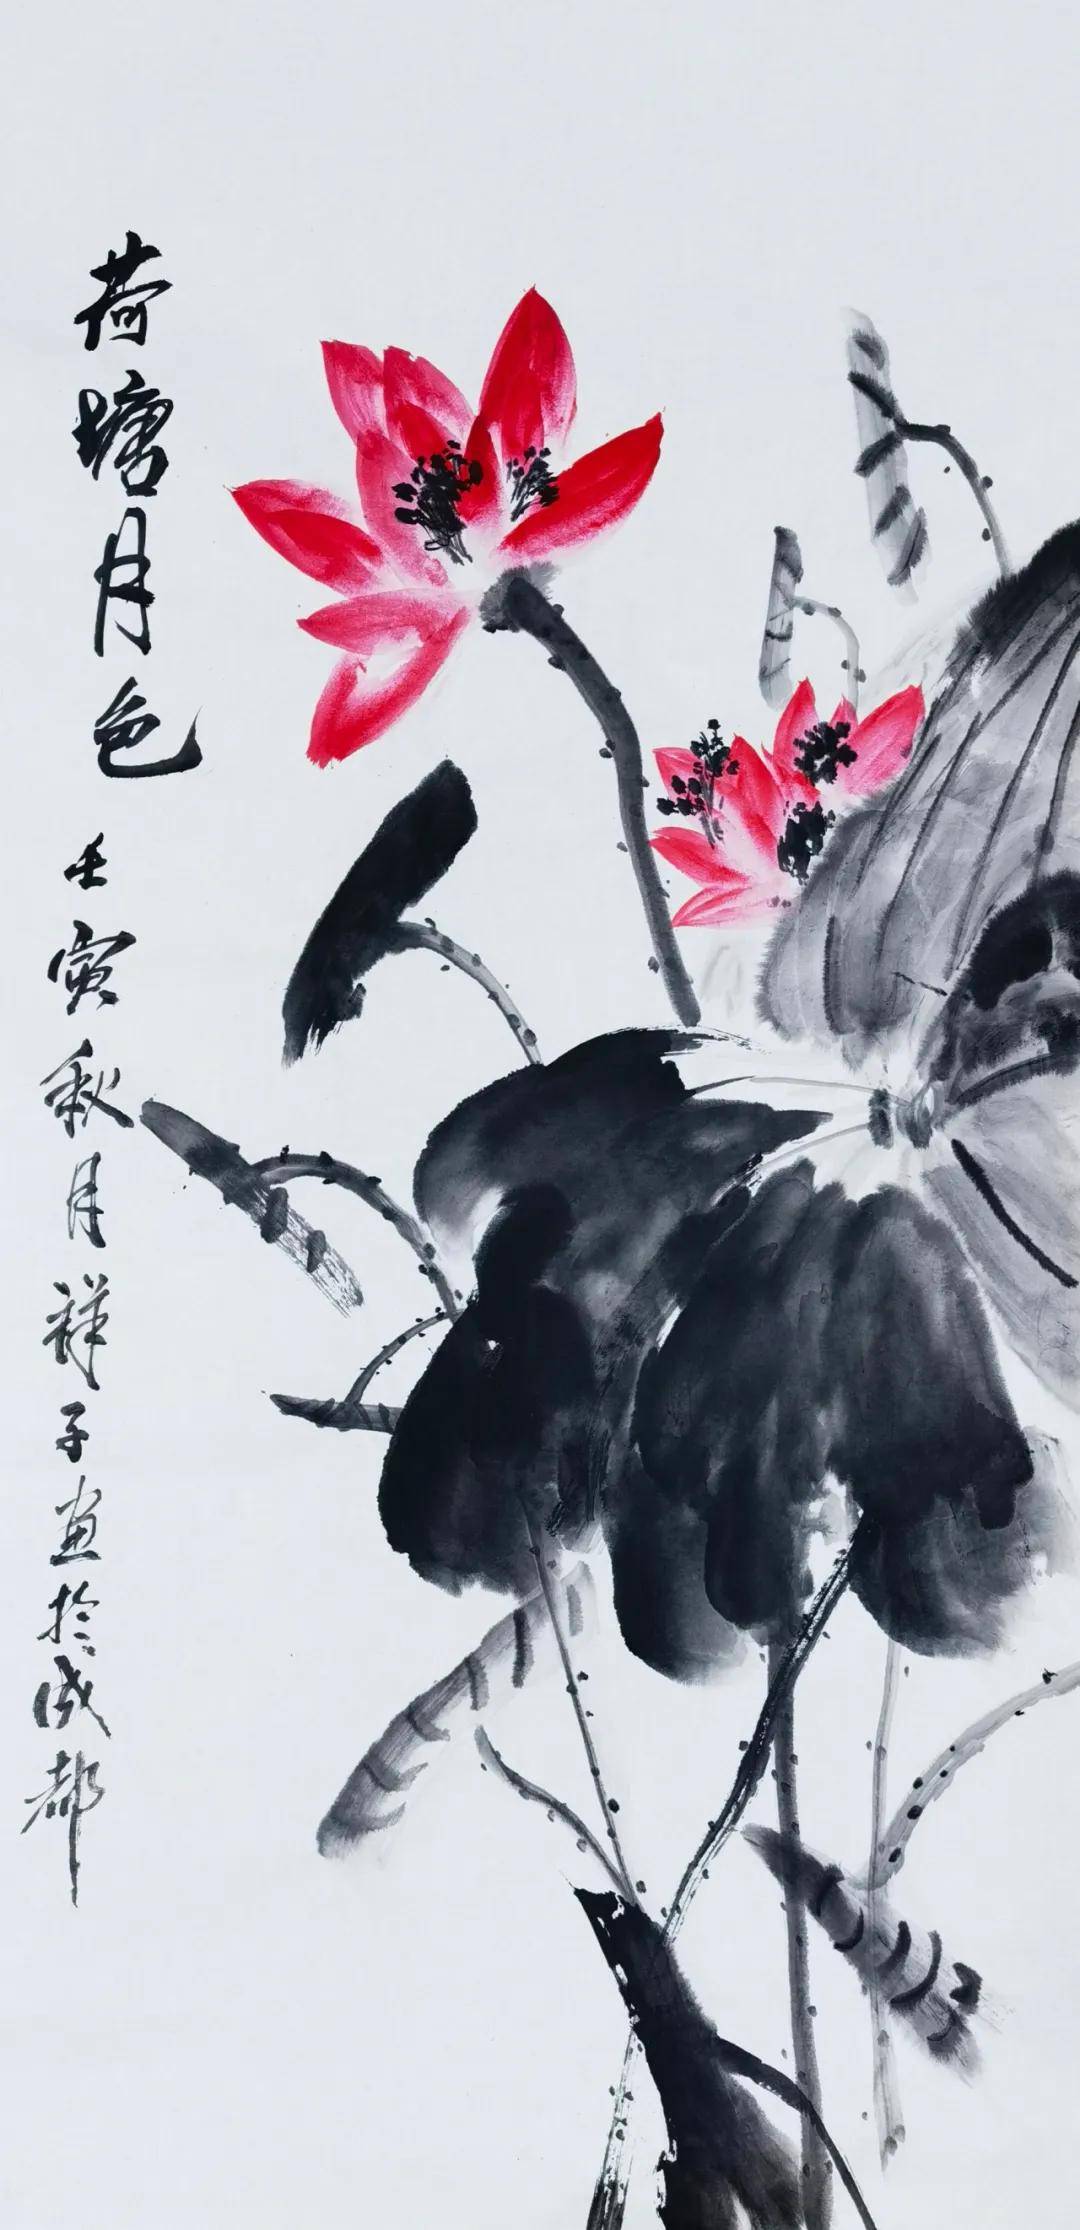 荷塘月色
壬寅秋月祥子画於成都